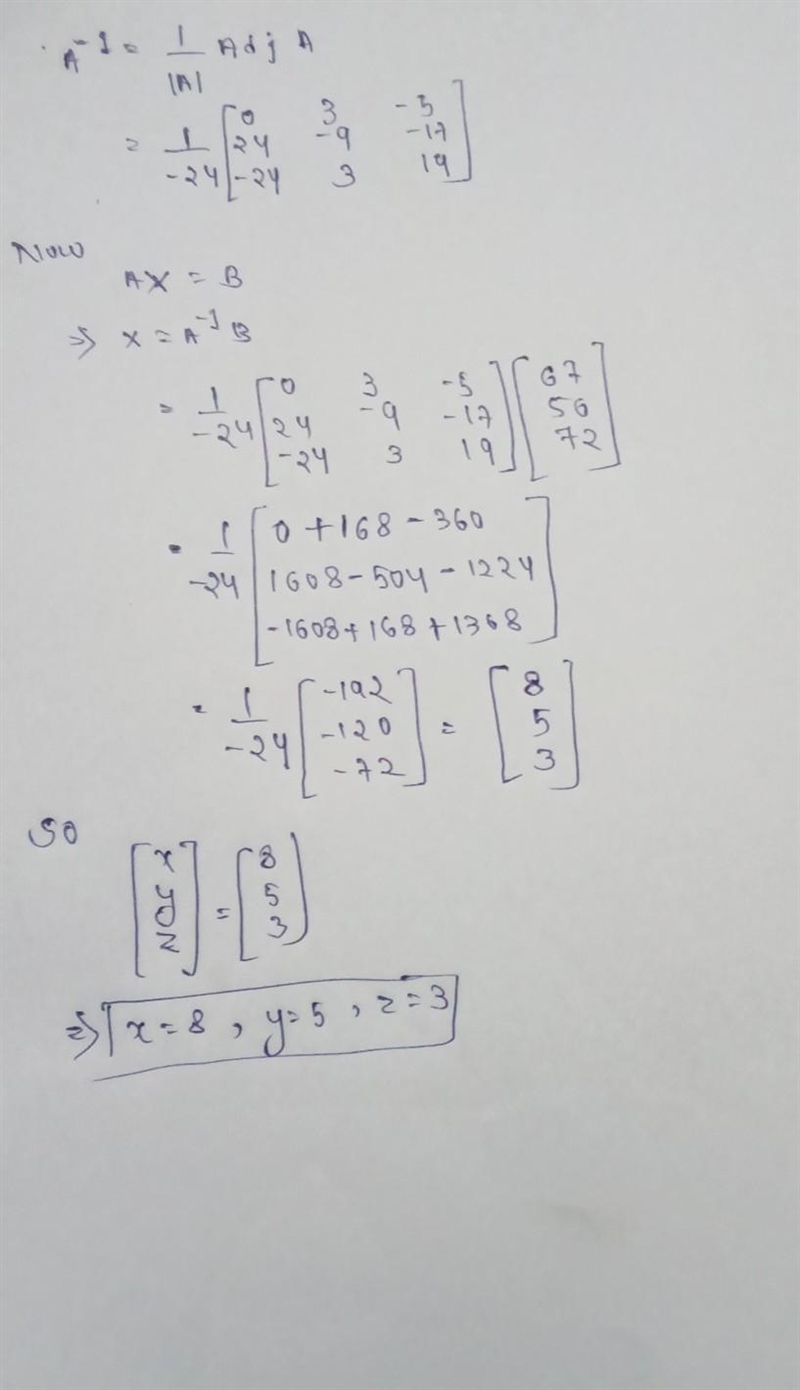 A⁻¹ = 1/|A| Adj A
= 1/-24 [0 3 -5
24 -9 -17
-24 3 19]
Now
AX = B
⇒ X = A⁻¹ B
= 1/-24 [0 3 -5
24 -9 -17
-24 3 19] [67
56
72]
= 1/-24 [0 + 168 - 360
1608 - 504 - 1224
-1608 + 168 + 1368]
= 1/-24 [-192
-120
-72] = [8
5
3]
So
[x
y
z] = [8
5
3]
⇒ x = 8 , y = 5 , z = 3